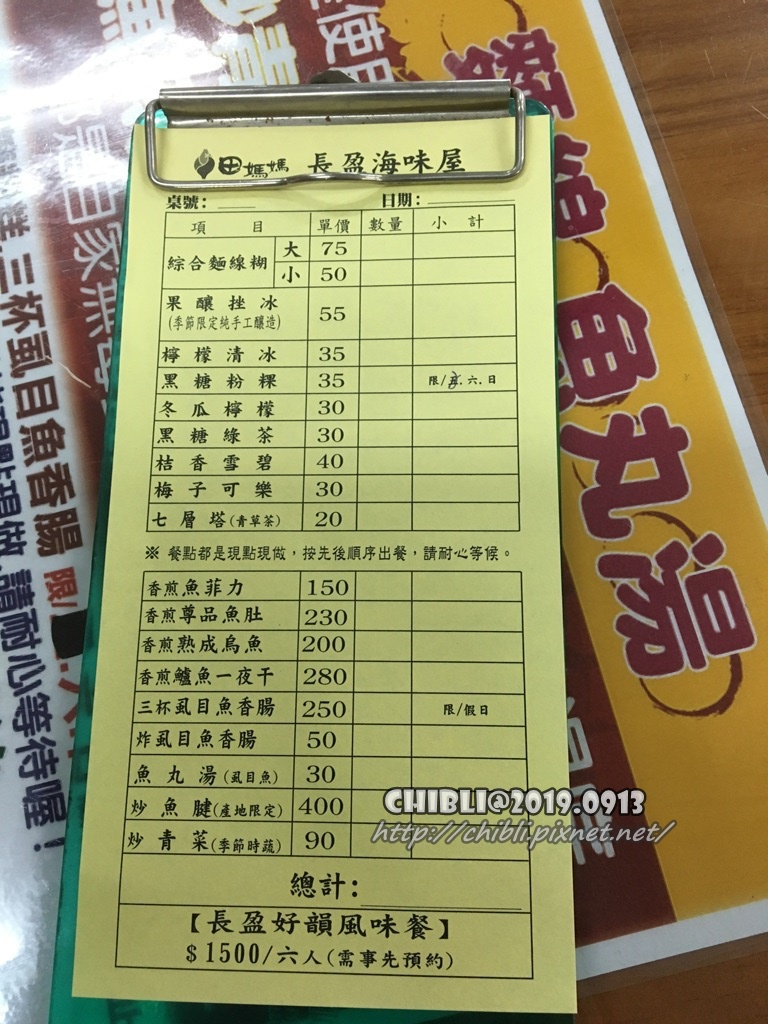 田媽媽 長盈海味屋
桌號： 日期：
項 目 單價 數量 小 計
綜合麵線糊 大 75
小 50
果釀挫冰 55
(季節限定純手工釀造)
檸檬清冰 35
黑糖粉粿 35 限/五.六.日
冬瓜檸檬 30
黑糖綠茶 30
桔香雪碧 40
梅子可樂 30
七層塔(青草茶) 20
※ 餐點都是現點現做，按先後順序出餐，請耐心等候。
香煎魚菲力 150
香煎尊品魚肚 230
香煎熟成烏魚 200
香煎鱸魚一夜干 280
三杯虱目魚香腸 250 限/假日
炸虱目魚香腸 50
魚丸湯(虱目魚) 30
炒魚腱(產地限定) 400
炒青菜(季節時蔬) 90
總計：
【長盈好韻風味餐】
$1500/六人(需事先預約)
CHIBLI@2019.0913
http://chibli.pixnet.net/
魚丸湯
三杯虱目魚香腸 限/
現做,請耐心等待喔!
是自家無毒
使用
炒青